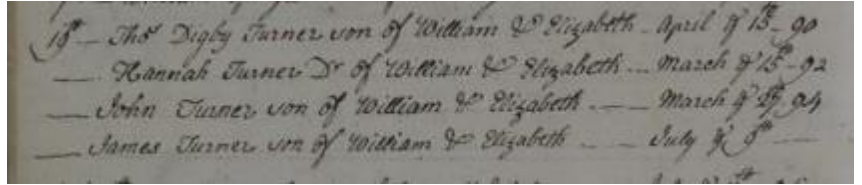 19th — Thos Digby Turner son of William & Elizabeth - April ye 15th - 90
— Hannah Turner Dr of William & Elizabeth --- March ye 15th - 92
— John Turner son of William & Elizabeth --- March ye 27th 94
— James Turner son of William & Elizabeth --- July ye 9th —